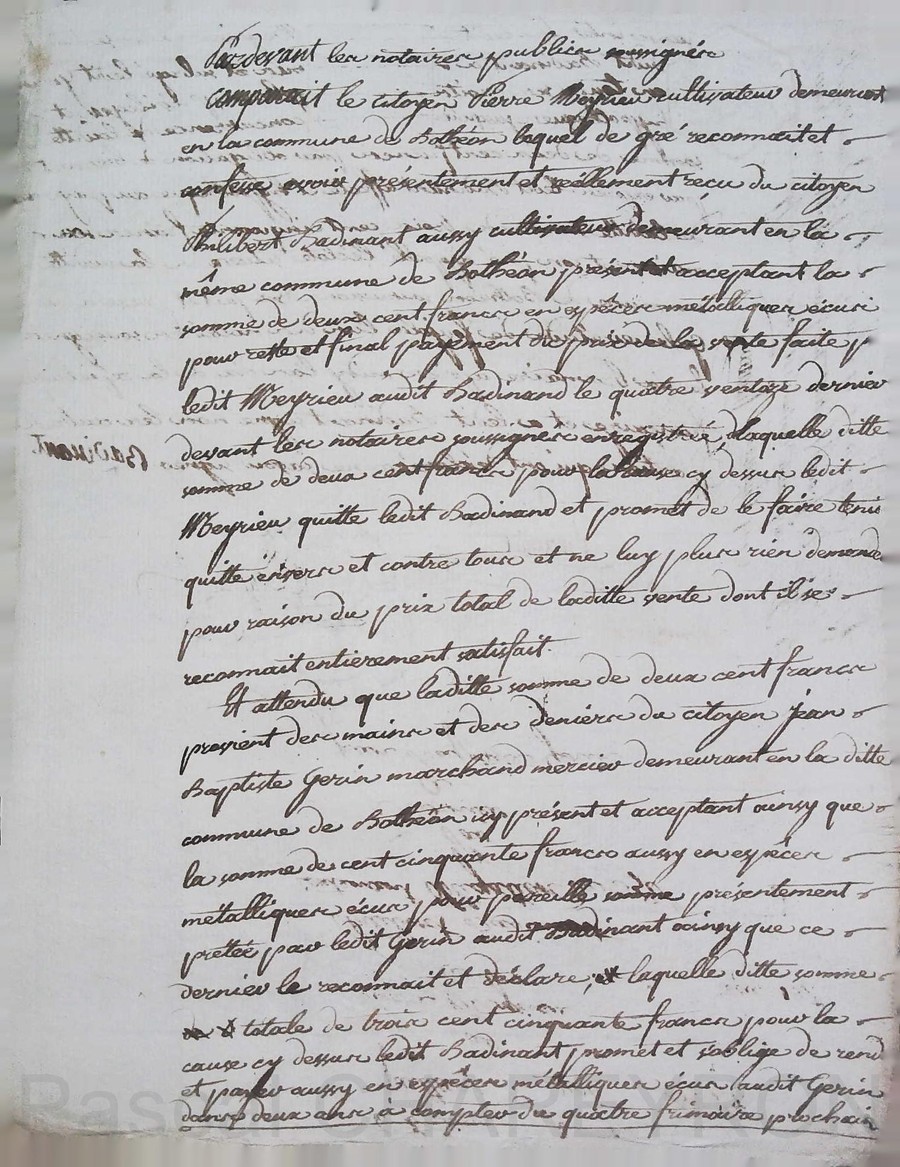 Pardevant les notaires publics soussignés
Comparait le citoyen Pierre Meyrieu cultivateur demeurant
en la commune de Bothéon lequel de gré reconnait et
confesse avoir présentement et réellement reçu du citoyen
Philibert Badinant aussy cultivateur demeurant en la
même commune de Bothéon présent et acceptant la
somme de deux cent francs en espèces métalliques écus
pour reste et final payement du prix de la vente faite p
ledit Meyrieu audit Badinand le quatre ventoze dernier
devant les notaires soussignés enregistrée, laquelle ditte
Badinant
somme de deux cent francs pour la cause cy dessus ledit
Meyrieu quitte ledit Badinand et promet de le faire tenir
quitte envers et contre tous et ne luy plus rien demande
pour raison du prix total de laditte vente dont il se
reconnait entierement satisfait.
Et attendu que laditte somme de deux cent francs
provient des mains et des deniers du citoyen jean
Baptiste Gerin marchand mercier demeurant en la ditte
commune de Bothéon icy présent et acceptant ainsy que
la somme de cent cinquante francs aussy en espèces
métalliques écus pour pareille somme présentement
prêtée par ledit Gerin audit Badinant ainsy que ce
dernier le reconnait et déclare, laquelle ditte somme
totale de trois cent cinquante francs pour la
cause cy dessus ledit Badinant promet et s'oblige de rend
et payer aussy en espèces métalliques écus audit Gerin
dans deux ans a compter du quatre frimaire prochain